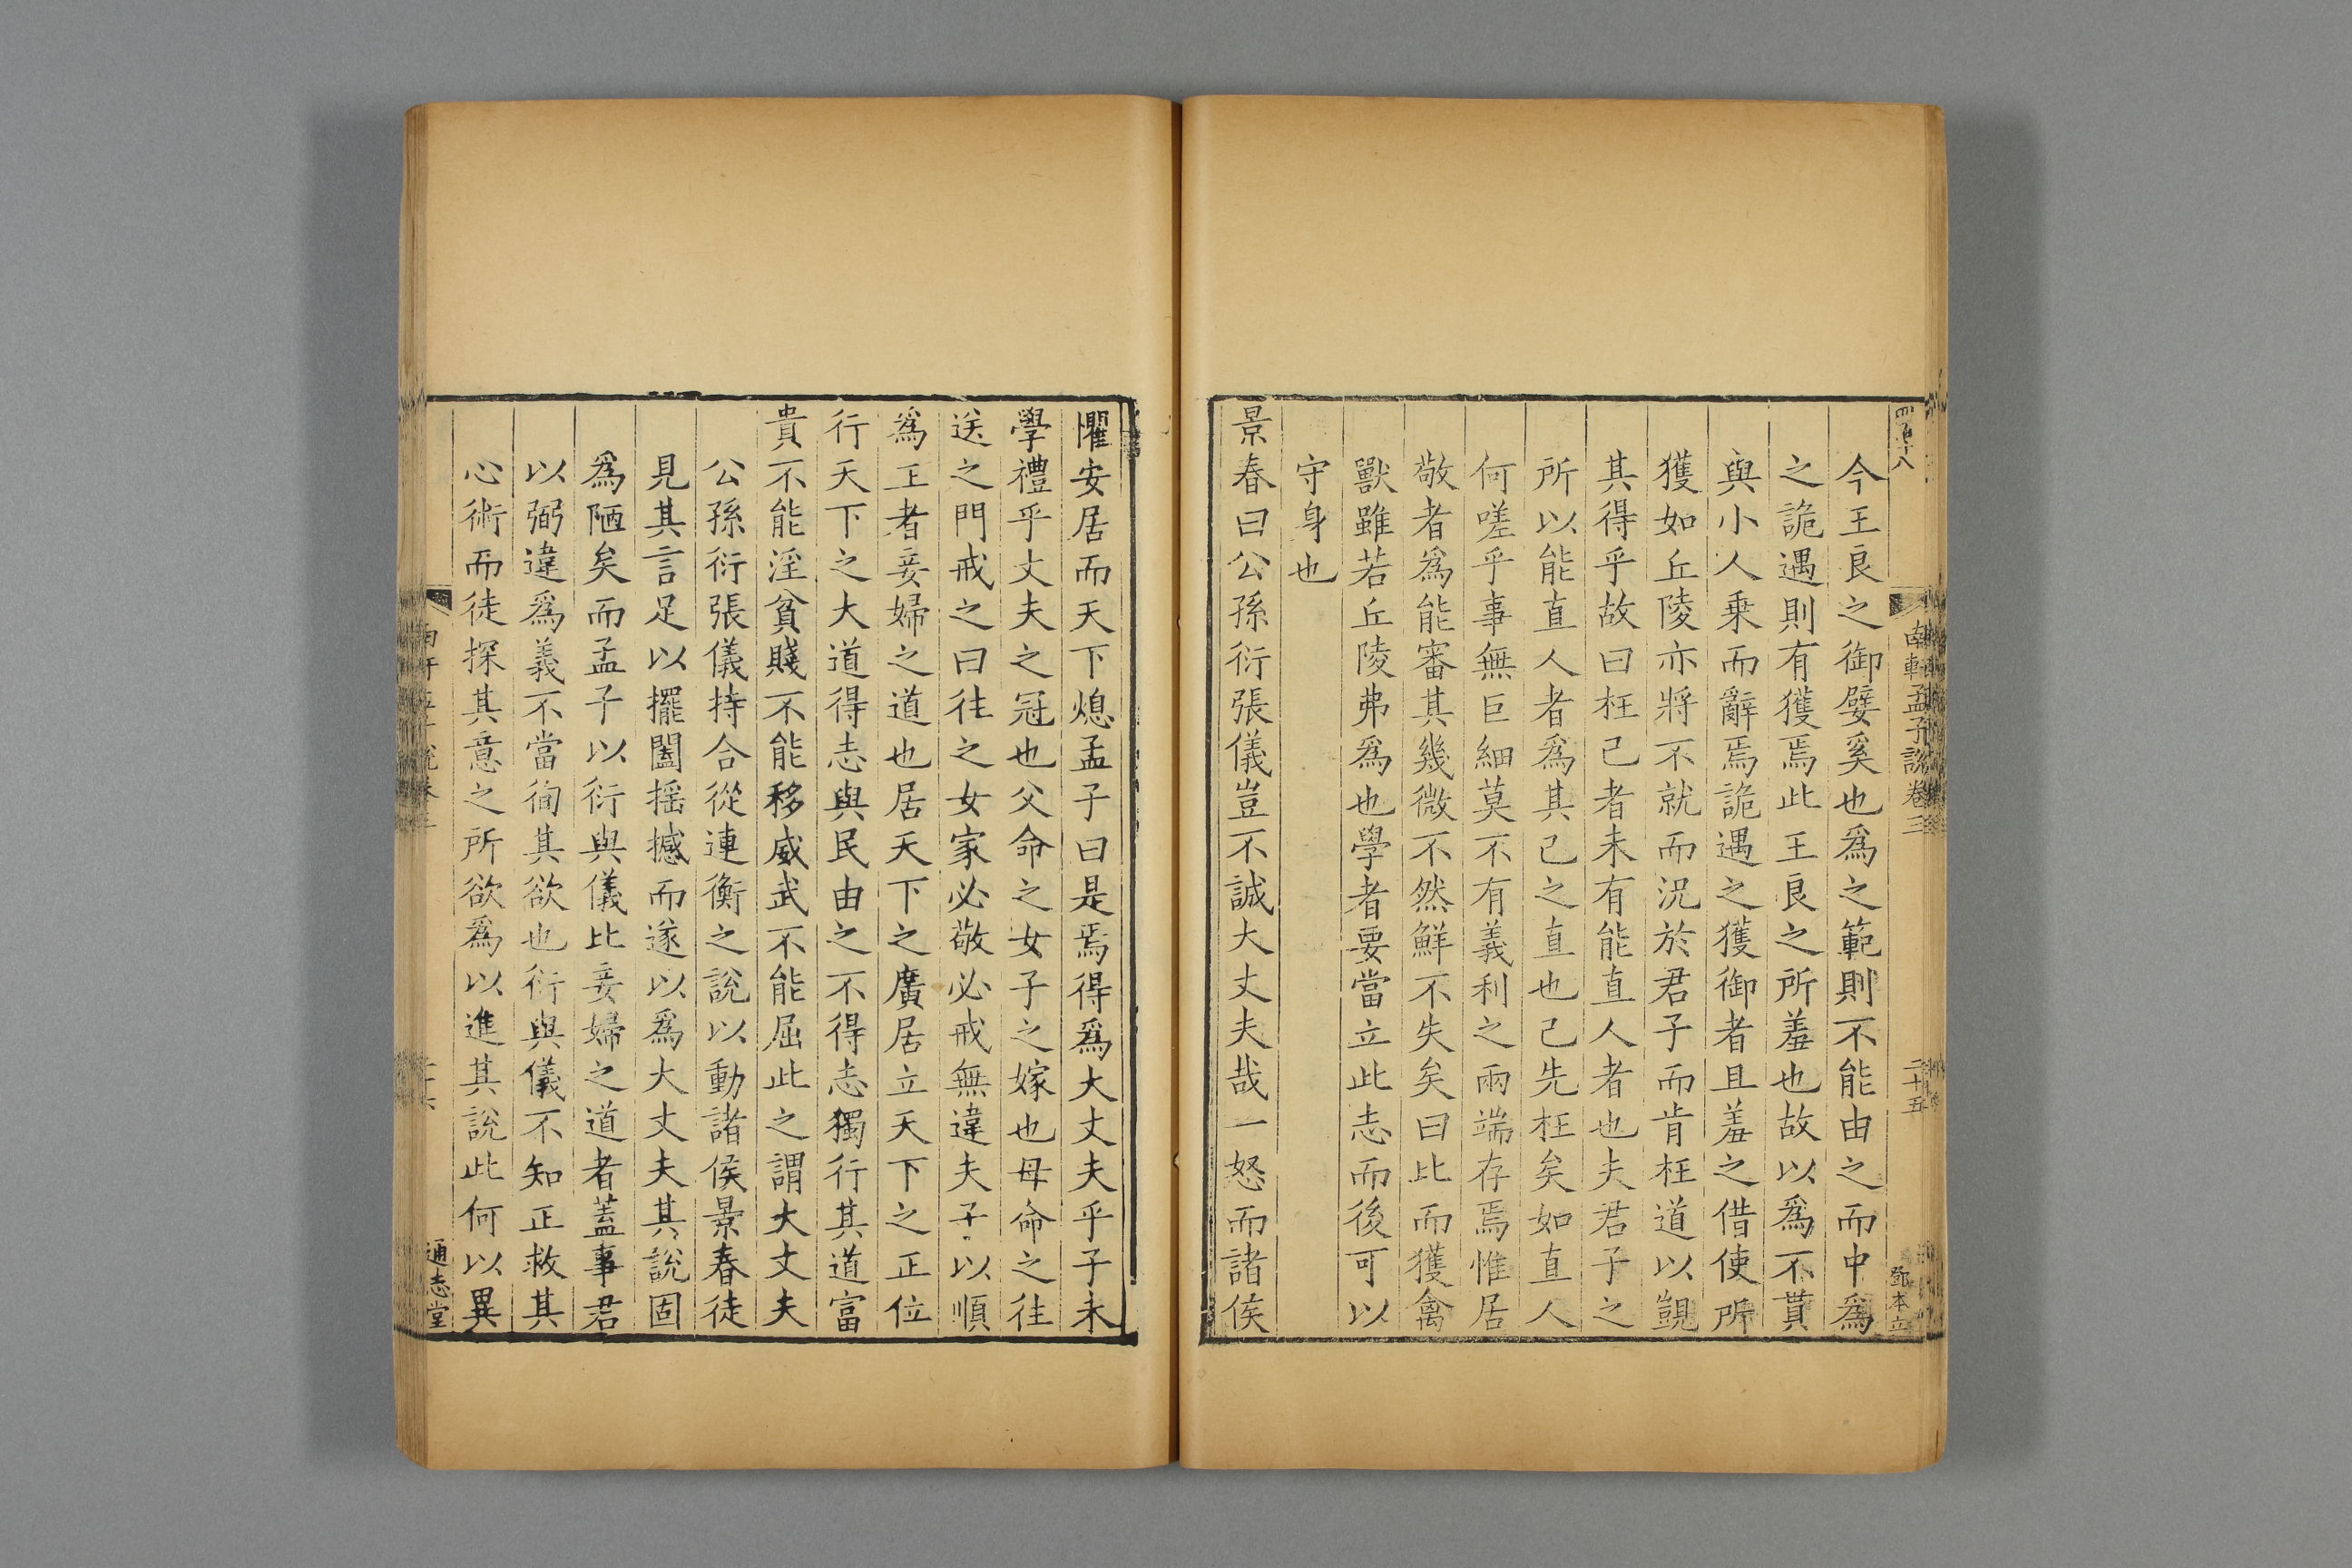 四百十八
南軒孟子說卷三
二十五
鄧本立
今王良之御嬖奚也爲之範則不能由之而中爲
之詭遇則有獲焉此王良之所羞也故以爲不貫
與小人乗而辭焉詭遇之獲御者且羞之借使所
獲如丘陵亦將不就而況於君子而肯枉道以覬
其得乎故曰枉己者未有能直人者也夫君子之
所以能直人者爲其己之直也己先枉矣如直人
何嗟乎事無巨細莫不有義利之兩端存焉惟居
敬者爲能審其幾微不然鮮不失矣曰比而獲禽
獸雖若丘陵弗爲也學者要當立此志而後可以
守身也
景春曰公孫衍張儀豈不誠大丈夫哉一怒而諸侯
懼安居而天下熄孟子曰是焉得爲大丈夫乎子未
學禮乎丈夫之冠也父命之女子之嫁也母命之往
送之門戒之曰往之女家必敬必戒無違夫子以順
爲正者妾婦之道也居天下之廣居立天下之正位
行天下之大道得志與民由之不得志獨行其道富
貴不能淫貧賤不能移威武不能屈此之謂大丈夫
公孫衍張儀持合從連衡之說以動諸侯景春徒
見其言足以擺闔揺撼而遂以爲大丈夫其說固
爲陋矣而孟子以衍與儀比妾婦之道者蓋事君
以弼違爲義不當徇其欲也衍與儀不知正救其
心術而徒探其意之所欲爲以進其說此何以異
通志堂